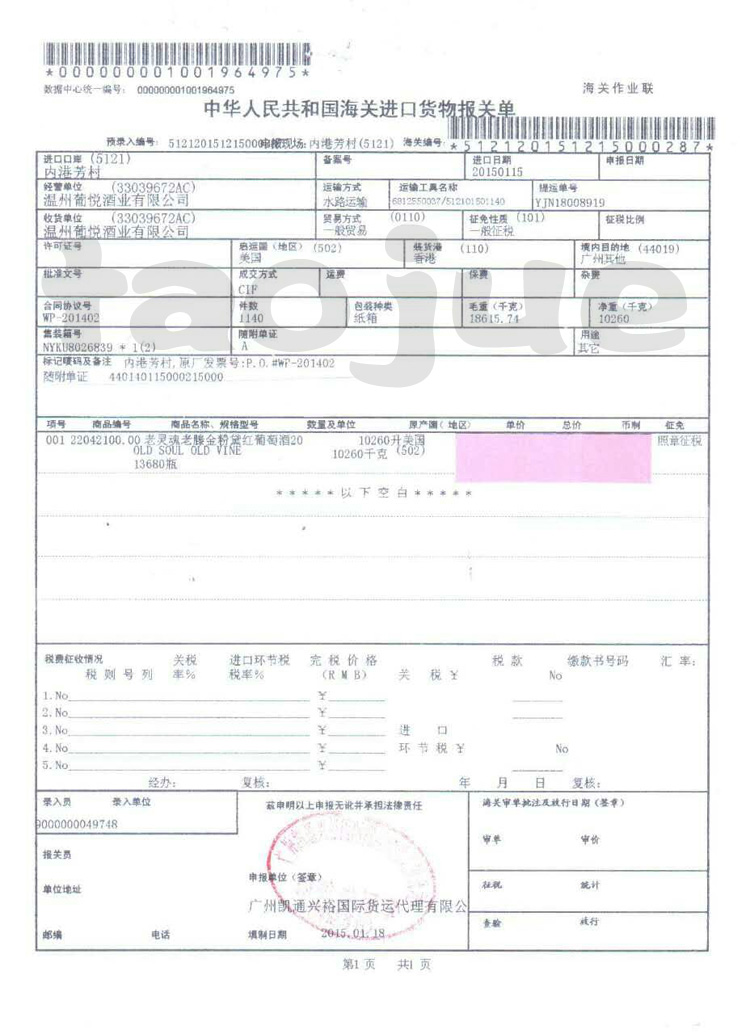 *0000000001001964975*
数据中心统一编号: 000000001001964975
海关作业联
中华人民共和国海关进口货物报关单
预录入编号: 512120151215000 申报现场: 内港芳村(5121) 海关编号: *512120151215000287*
进口口岸 (5121) 备案号 进口日期 申报日期
内港芳村 20150115
经营单位 (33039672AC) 运输方式 运输工具名称 提运单号
温州葡悦酒业有限公司 水路运输 YJN18008919
收货单位 (33039672AC) 贸易方式 (0110) 征免性质 (101) 征税比例
温州葡悦酒业有限公司 一般贸易 一般征税
许可证号 启运国(地区) (502) 装货港 (110) 境内目的地 (44019)
美国 香港 广州其他
批准文号 成交方式 运费 保费 杂费
CIF
合同协议号 件数 包装种类 毛重(千克) 净重(千克)
WP-201402 1140 纸箱 18615.74 10260
集装箱号 随附单证 用途
NYKU8026839 * 1(2) A 其它
标记唛码及备注 内港芳村,原厂发票号:P.O.#WP-201402
随附单证 440140115000215000
项号 商品编号 商品名称、规格型号 数量及单位 原产国(地区) 单价 总价 币制 征免
001 22042100.00 老灵魂老藤金粉黛红葡萄酒20 10260升美国 照章征税
OLD SOUL OLD VINE 10260千克 (502)
13680瓶
*****以下空白*****
税费征收情况 关税 进口环节税 完税价格 税款 缴款书号码 汇率:
税则号列 率% 税率% (RMB) 关 税¥ No
1.No ¥
2.No ¥
3.No ¥ 进 口
4.No ¥ 环节税¥ No
5.No ¥
经办: 复核: 年 月 日 复核:
录入员 录入单位 兹申明以上申报无讹并承担法律责任 海关审单批注及放行日期(签章)
9000000049748
审单 审价
报关员
申报单位(签章)
单位地址 征税 统计
广州凯通兴裕国际货运代理有限公
查验 放行
邮编 电话 填制日期 2015.01.18
第1页 共1页
taojue